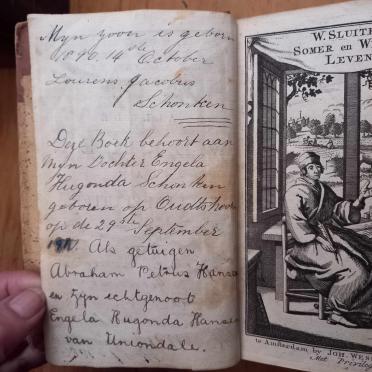 Myn zoon is geboren
1890. 14de October
Lourens Jacobus
Schonken
Deze Boek behoort aan
Myn Dochter Engela
Hugonda Schonken
geboren op Oudtshoorn
op de 29ste September
Als getuigen
Abraham Petrus
en zyn echtgenoot
Engela Hugonda
van Uniondale.
W. SLUITE
SOMER en W
LEVEN
te Amsterdam by JOH. WES
Met Privileg